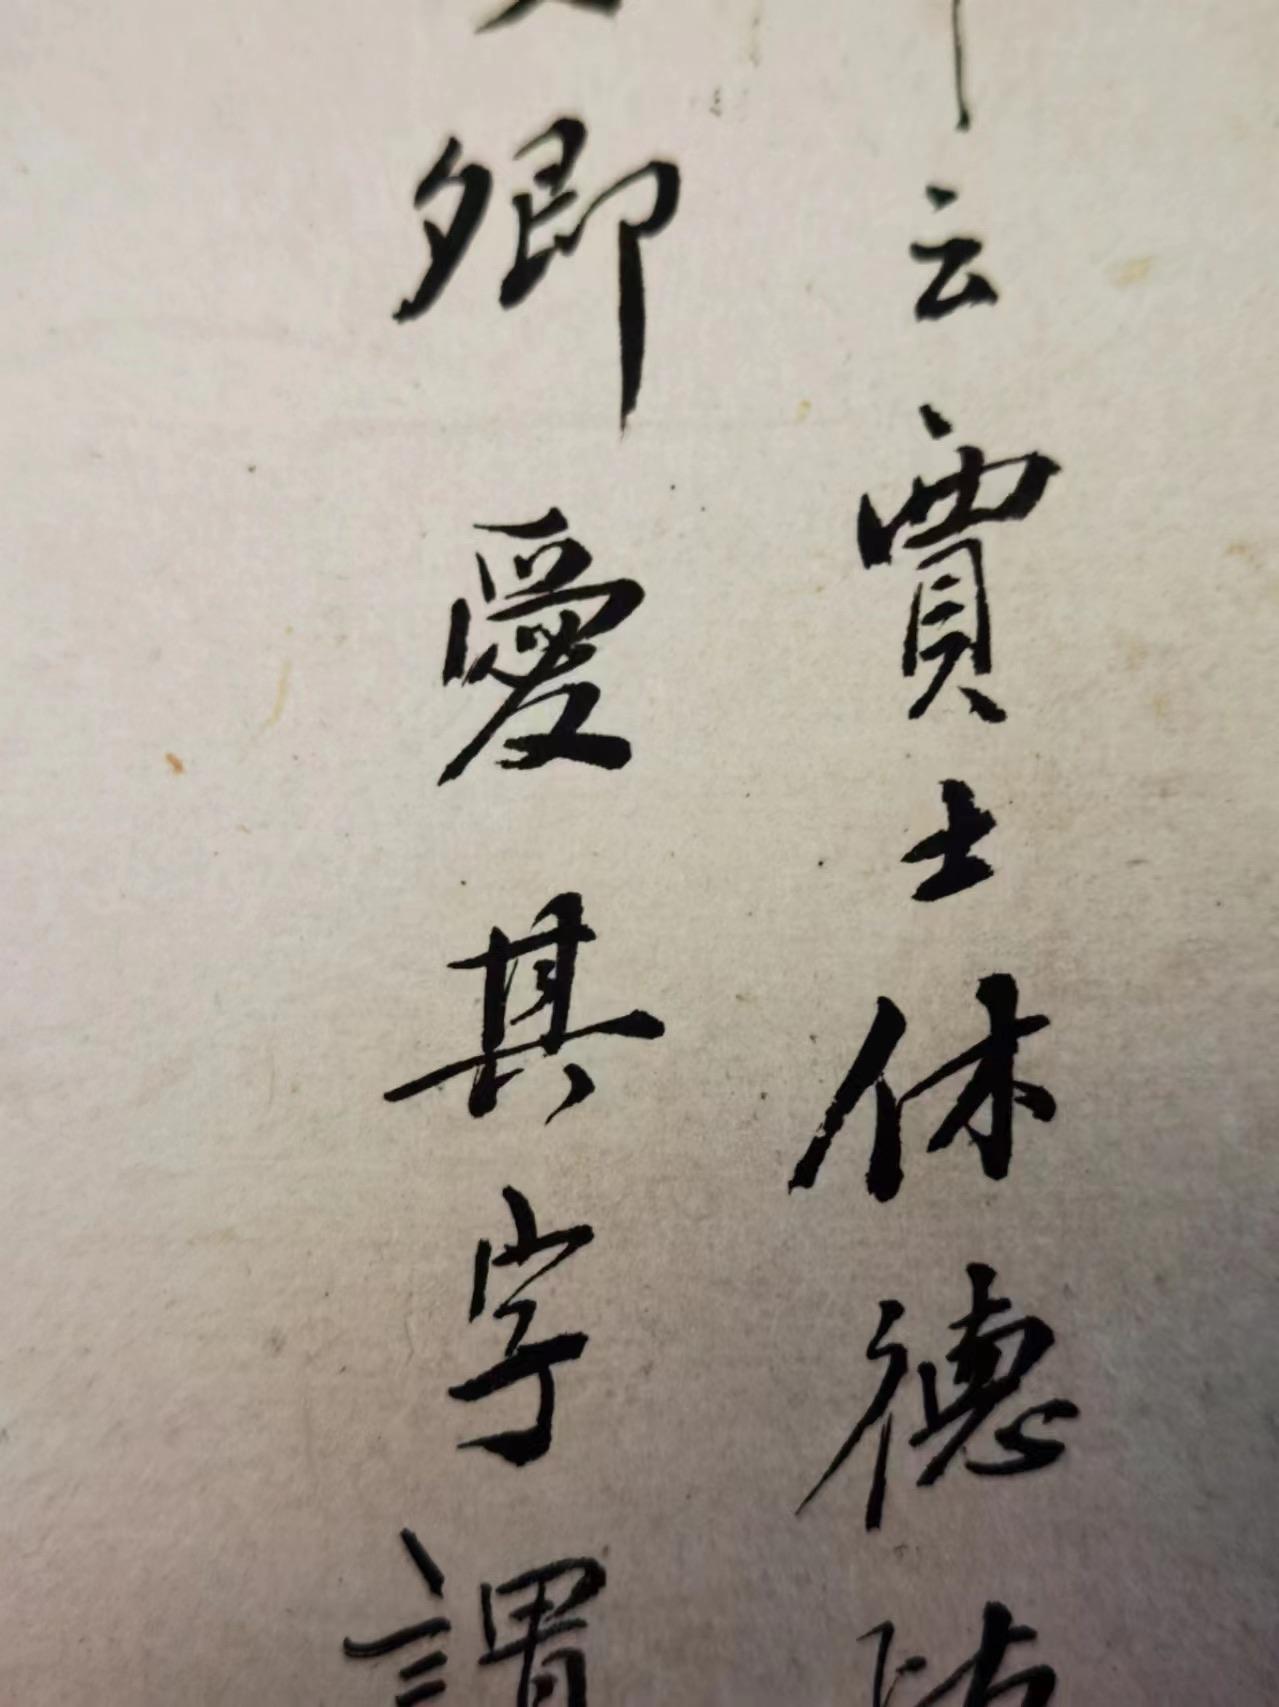 云賈士休德
卿愛其字謂